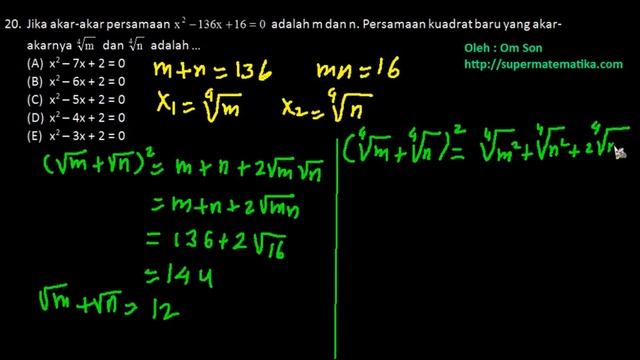 20. Jika akar-akar persamaan x² − 136x + 16 = 0 adalah m dan n. Persamaan kuadrat baru yang akar-
akarnya ∜m dan ∜n adalah ...
(A) x² – 7x + 2 = 0
(B) x² – 6x + 2 = 0
(C) x² – 5x + 2 = 0
(D) x² – 4x + 2 = 0
(E) x² – 3x + 2 = 0
Oleh : Om Son
http://supermatematika.com
m+n = 136 mn = 16
x₁ = ∜m x₂ = ∜n
(√m + √n)² = m + n + 2√m √n
= m + n + 2√mn
= 136 + 2√16
= 144
√m + √n = 12
(∜m + ∜n)² = ∜m² + ∜n² + 2∜